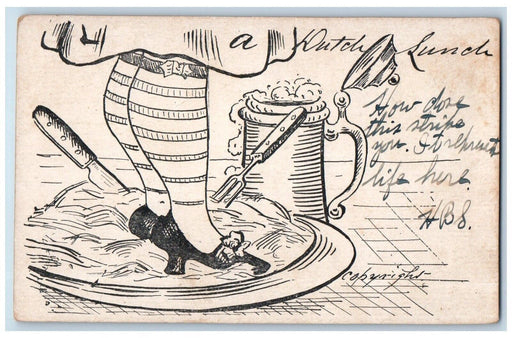 a Dutch Lunch
How dose
this strike
you. It represents
life here
HBS.
copyright